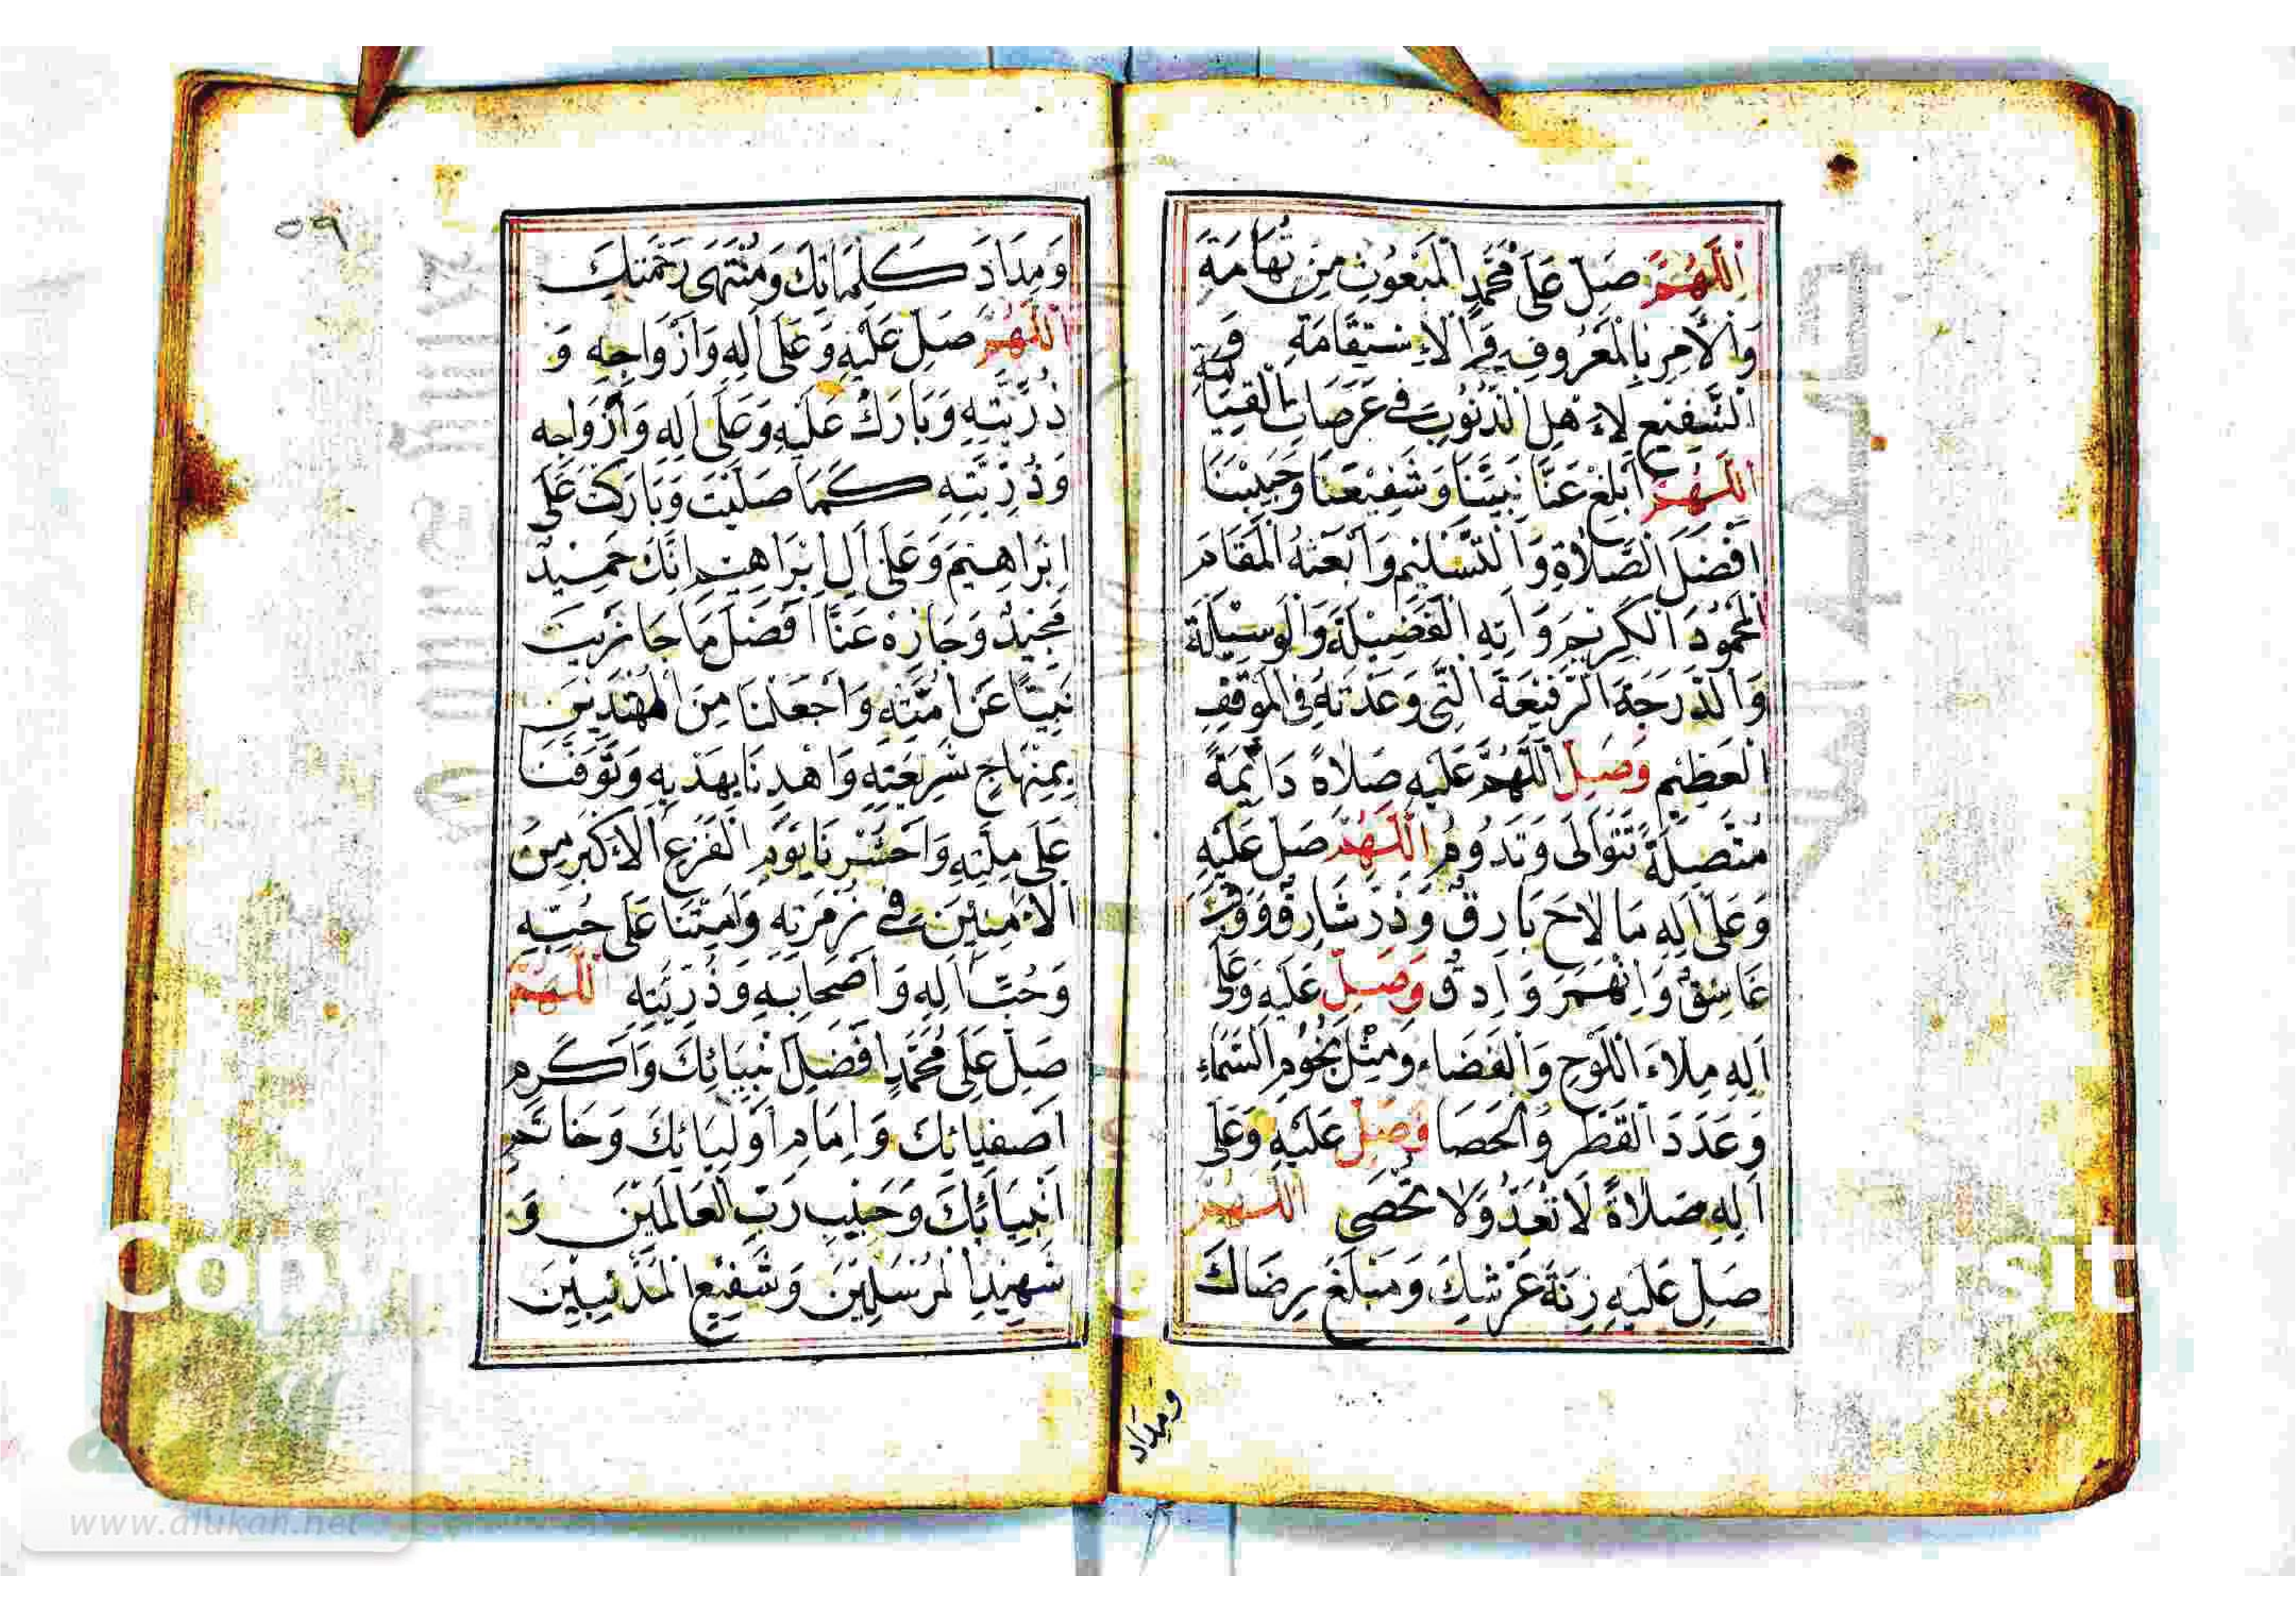 اَللّٰهُمَّ صَلِّ عَلَى مُحَمَّدٍ الْمَبْعُوثِ مِنْ تُهَامَةَ
وَالْاَمِرِ بِالْمَعْرُوفِ وَالْاِسْتِقَامَةِ وَ
الشَّفِيعِ لِاَهْلِ الذُّنُوبِ فِي عَرَصَاتِ الْقِيَامَةِ
اَللّٰهُمَّ اَبْلِغْ عَنَّا نَبِيَّنَا وَشَفِيعَنَا وَحَبِيبَنَا
اَفْضَلَ الصَّلَاةِ وَالتَّسْلِيمِ وَابْعَثْهُ الْمَقَامَ
الْمَحْمُودَ الْكَرِيمَ وَاٰتِهِ الْفَضِيلَةَ وَالْوَسِيلَةَ
وَالدَّرَجَةَ الرَّفِيعَةَ الَّتِي وَعَدْتَهُ فِي الْمَوْقِفِ
الْعَظِيمِ وَصَلِّ اللّٰهُمَّ عَلَيْهِ صَلَاةً دَائِمَةً
مُتَّصِلَةً تَتَوَالَى وَتَدُومُ اَللّٰهُمَّ صَلِّ عَلَيْهِ
وَعَلَى اٰلِهِ مَا لَاحَ بَارِقٌ وَذَرَّ شَارِقٌ وَوَقَبَ
غَاسِقٌ وَانْهَمَرَ وَادِقٌ وَصَلِّ عَلَيْهِ وَعَلَى
اٰلِهِ مِلْاءَ اللَّوْحِ وَالْفَضَاءِ وَمِثْلَ نُجُومِ السَّمَاءِ
وَعَدَدَ الْقَطْرِ وَالْحَصَا وَصَلِّ عَلَيْهِ وَعَلَى
اٰلِهِ صَلَاةً لَا تُعَدُّ وَلَا تُحْصَى اَللّٰهُمَّ
صَلِّ عَلَيْهِ زِنَةَ عَرْشِكَ وَمَبْلَغَ رِضَاكَ
ومداد
٥٩
وَمِدَادَ كَلِمَاتِكَ وَمُنْتَهَى رَحْمَتِكَ
اَللّٰهُمَّ صَلِّ عَلَيْهِ وَعَلَى اٰلِهِ وَاَزْوَاجِهِ وَ
ذُرِّيَّتِهِ وَبَارِكْ عَلَيْهِ وَعَلَى اٰلِهِ وَاَزْوَاجِهِ
وَذُرِّيَّتِهِ كَمَا صَلَّيْتَ وَبَارَكْتَ عَلَى
اِبْرَاهِيمَ وَعَلَى اٰلِ اِبْرَاهِيمَ اِنَّكَ حَمِيدٌ
مَجِيدٌ وَجَازِهِ عَنَّا اَفْضَلَ مَا جَازَيْتَ
نَبِيًّا عَنْ اُمَّتِهِ وَاجْعَلْنَا مِنَ الْمُهْتَدِينَ
بِمِنْهَاجِ شَرِيعَتِهِ وَاهْدِنَا بِهَدْيِهِ وَتَوَفَّنَا
عَلَى مِلَّتِهِ وَاحْشُرْنَا يَوْمَ الْفَزَعِ الْاَكْبَرِ مِنَ
الْاٰمِنِينَ فِي زُمْرَتِهِ وَاَمِتْنَا عَلَى حُبِّهِ
وَحُبِّ اٰلِهِ وَاَصْحَابِهِ وَذُرِّيَّتِهِ اَللّٰهُمَّ
صَلِّ عَلَى مُحَمَّدٍ اَفْضَلِ اَنْبِيَائِكَ وَاَكْرَمِ
اَصْفِيَائِكَ وَاِمَامِ اَوْلِيَائِكَ وَخَاتَمِ
اَنْبِيَائِكَ وَحَبِيبِ رَبِّ الْعَالَمِينَ وَ
شَهِيدِ الْمُرْسَلِينَ وَشَفِيعِ الْمُذْنِبِينَ
www.alukah.net